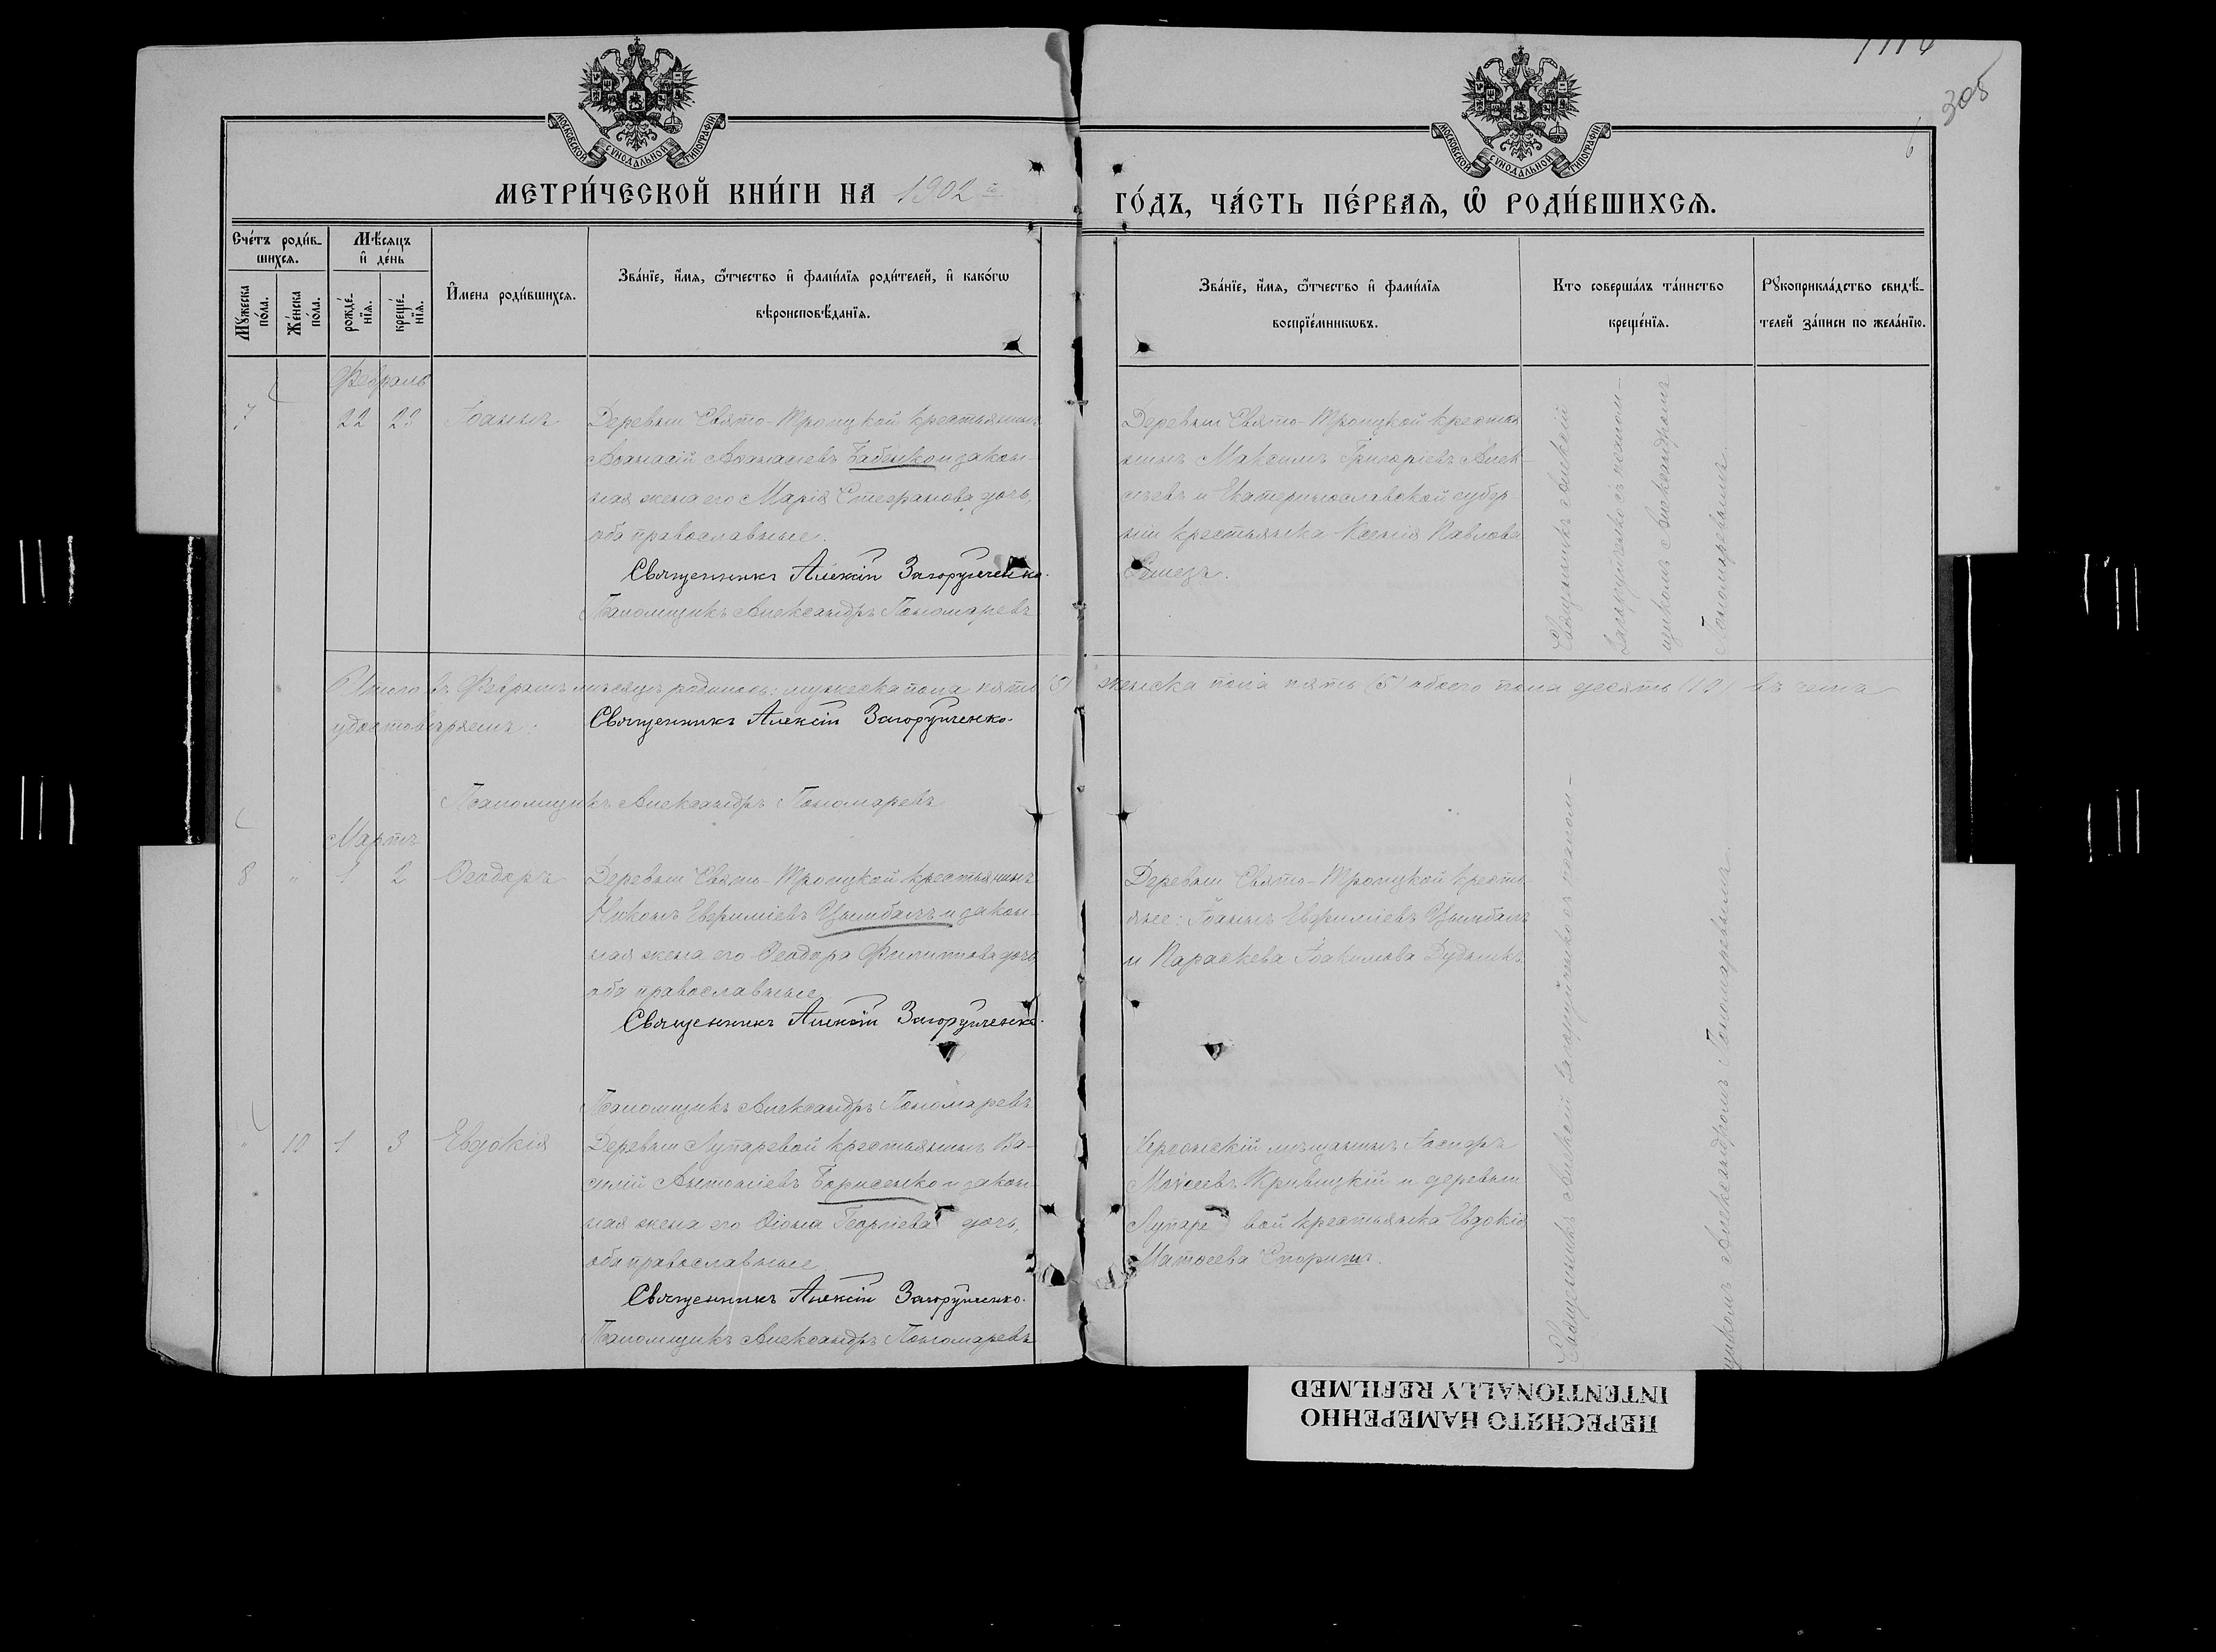 305
6
МОСКОВСКОЙ СУНОДАЛЬНОЙ ТИПОГРАФІИ
МОСКОВСКОЙ СУНОДАЛЬНОЙ ТИПОГРАФІИ
МЕТРИ́ЧЕСКОЙ КНИ́ГИ НА 1902 й
ГО́ДЪ, ЧА́СТЬ ПЕ́РВАЯ, Ѡ҆ РОДИ́ВШИХСЯ.
Сче́тъ роди́в-
шихся.
Мꙋ́жеска по́ла.
Же́нска по́ла.
Мѣ́сяцъ
и҆ де́нь
рожде́-
нїя.
креще́-
нїя.
И҆мена роди́вшихся.
Зва́нїе, и҆́мя, ѻ҆́тчество и҆ фами́лїя роди́телей, и҆ како́гѡ
вѣроисповѣ́данїя.
Зва́нїе, и҆́мя, ѻ҆́тчество и҆ фами́лїя
воспрїе́мникѡвъ.
Кто соверша́лъ та́инство
креще́нїя.
Рꙋкоприкла́дство свидѣ́-
телей за́писи по жела́нїю.
Февраль
7 22 23 Іоаннъ
Деревни Свято-Троицкой крестьянинъ
Аѳанасій Аѳанасіевъ Бабенко и закон-
ная жена его Марія Стефанова дочь,
оба православные.
Священникъ Алексій Загоруйченко.
Псаломщикъ Александръ Пономаревъ
Деревни Свято-Троицкой крестья
нинъ Максимъ Григоріевъ Алек-
сѣевъ и Екатеринославской губер-
ніи крестьянка Ксенія Павлова
Священникъ Алексій
Загоруйченко съ псалом-
щикомъ Александромъ
Пономаревымъ.
Итого въ Февралѣ мѣсяцѣ родилось: мужеска пола пять (5) женска пола пять (5) обоего пола десять (10) въ чемъ
удостовѣряемъ: Священникъ Алексій Загоруйченко.
Псаломщикъ Александръ Пономаревъ
Мартъ
8 " 1 2 Ѳеодоръ
Деревни Свято-Троицкой крестьянинъ
Никонъ Евфиміевъ Цымбалъ и закон-
ная жена его Ѳеодора Филиппова дочь,
оба православные.
Священникъ Алексій Загоруйченко.
Псаломщикъ Александръ Пономаревъ
Деревни Свято-Троицкой кресть-
яне: Іоаннъ Евфиміевъ Цымбалъ
и Параскева Іоакимова Дудникъ.
" 10 1 3 Евдокія
Деревни Лупаревой крестьянинъ Ва-
силій Антоніевъ Борисенко и закон-
ная жена его Ѳіона Георгіева дочь,
оба православные.
Священникъ Алексій Загоруйченко.
Псаломщикъ Александръ Пономаревъ
Херсонскій мѣщанинъ
Моѵсеевъ Кривицкій и деревни
Лупаре вой крестьянка Евдокія
Матѳеева
Священникъ Алексій Загоруйченко съ псалом-
щикомъ Александромъ Пономаревымъ.
ПЕРЕСНЯТО НАМЕРЕННО
INTENTIONALLY REFILMED